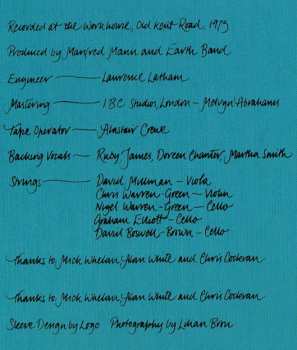 Recorded at the Workhouse, Old Kent Road, 1973
Produced by Manfred Mann and Earth Band
Engineer — Laurence Latham
Mastering — I.B.C Studios, London – Melvyn Abrahams
Tape Operator — Alastair
Backing Vocals — Ruby James, Doreen Chanter, Martha Smith
Strings — David Millman – Viola
Chris Warren-Green – Violin
Nigel Warren-Green – Cello
Graham Elliott – Cello
David Boswell-Brown – Cello
Thanks to, Mick Whelan, Alan White and Chris Cockran
Thanks to, Mick Whelan, Alan White and Chris Cockran
Sleeve Design by Logo Photography by Lilian Bron